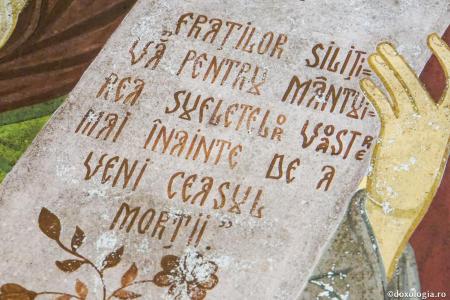 „FRAȚILOR SILIȚI=
VĂ PENTRU MÂNTUI=
REA SUFLETELOR VOASTRE
MAI ÎNAINTE DE A
VENI CEASUL
MORȚII.”
©doxologia.ro